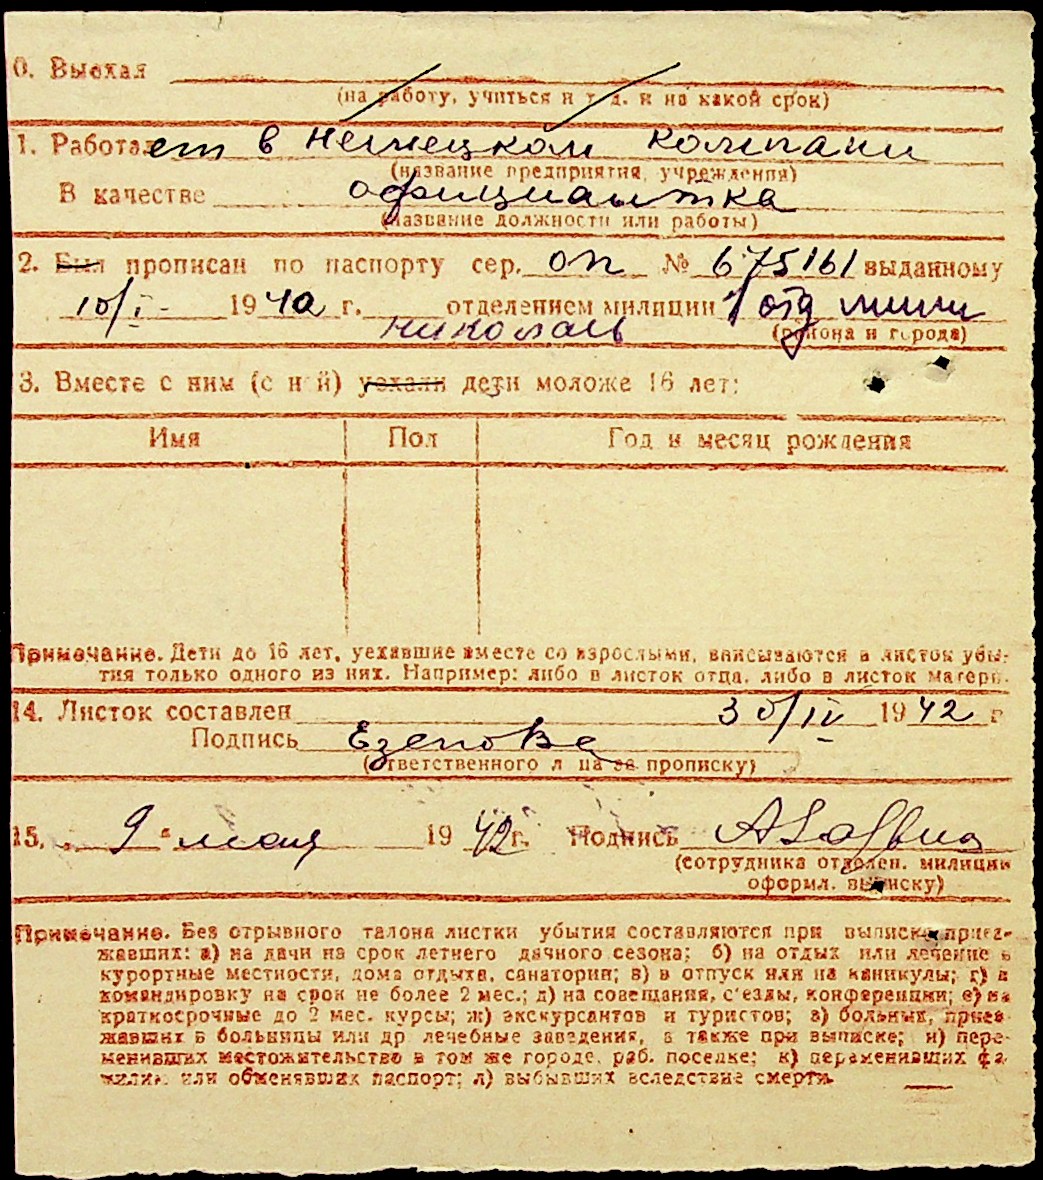 0. Выехал
(на работу, учиться и т. д. и на какой срок)
1. Работает в немецком компани
(название предприятия, учреждения)
В качестве официантка
(название должности или работы)
2. Был прописан по паспорту сер. ОП № 675161 выданному
10/I- 1940 г. отделением милиции 1 отд мили
николаев (района и города)
3. Вместе с ним (с ней) уехали дети моложе 16 лет:
Имя Пол Год и месяц рождения
Примечание. Дети до 16 лет, уехавшие вместе со взрослыми, вписываются в листок убы-
тия только одного из них. Например: либо в листок отца, либо в листок матери.
14. Листок составлен 30/IV 1942 г
Подпись Езепова
(ответственного лица за прописку)
15. „9" мая 1942 г. Подпись
(сотрудника отделен. милиции
оформл. выписку)
Примечание. Без отрывного талона листки убытия составляются при выписке приез-
жавших: а) на дачи на срок летнего дачного сезона; б) на отдых или лечение в
курортные местности, дома отдыха, санатории; в) в отпуск или на каникулы; г) в
командировку на срок не более 2 мес.; д) на совещания, с'езды, конференции; е) на
краткосрочные до 2 мес. курсы; ж) экскурсантов и туристов; з) больных, приез-
жавших в больницы или др лечебные заведения, а также при выписке; и) пере-
менивших местожительство в том же городе, раб. поселке; к) переменивших фа-
милию или обменявших паспорт; л) выбывших вследствие смерти.